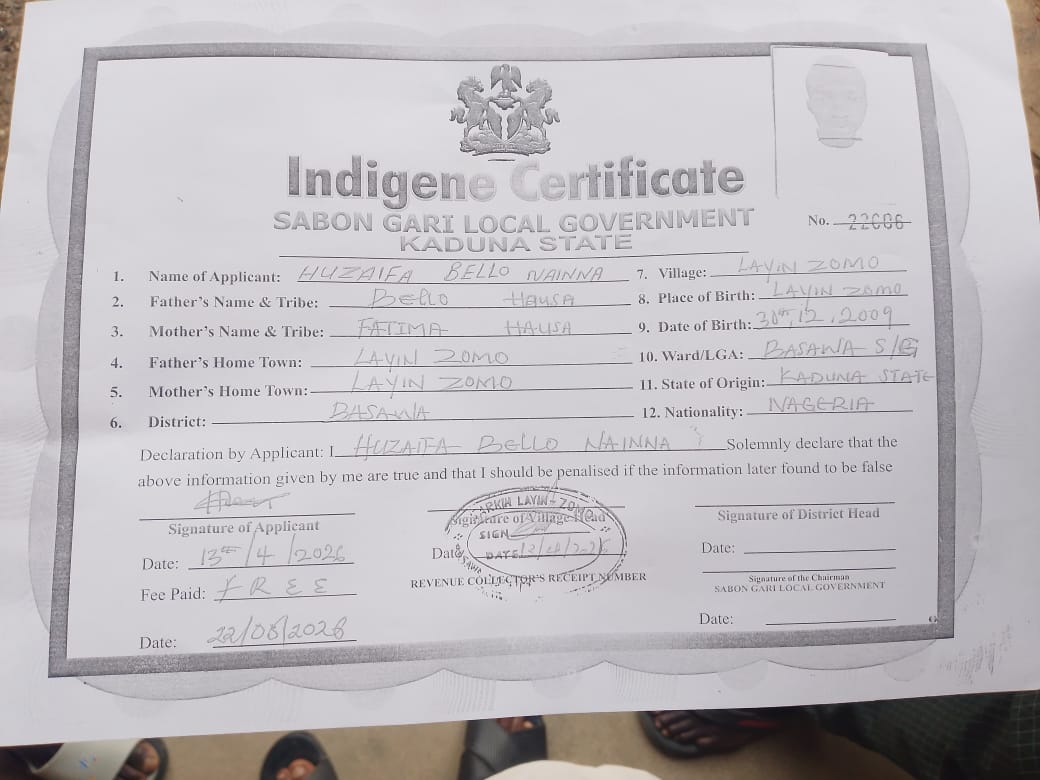 Indigene Certificate
SABON GARI LOCAL GOVERNMENT
KADUNA STATE
No. 22006
1. Name of Applicant: HUZAIFA BELLO NAINNA
2. Father's Name & Tribe: BELLO HAUSA
3. Mother's Name & Tribe: FATIMA HAUSA
4. Father's Home Town: LAYIN ZOMO
5. Mother's Home Town: LAYIN ZOMO
6. District: BASAWA
7. Village: LAYIN ZOMO
8. Place of Birth: LAYIN ZOMO
9. Date of Birth: 30th, 12, 2009
10. Ward/LGA: BASAWA S/G
11. State of Origin: KADUNA STATE
12. Nationality: NAGERIA
Declaration by Applicant: I HUZAIFA BELLO NAINNA Solemnly declare that the
above information given by me are true and that I should be penalised if the information later found to be false
Signature of Applicant
Date: 13th/4/2026
Fee Paid: FREE
Date: 22/08/2026
SARKIN LAYIN-ZOMO
Signature of Village Head
SIGN
Date
DATE
REVENUE COLLECTOR'S RECEIPT NUMBER
Signature of District Head
Date:
Signature of the Chairman
SABON GARI LOCAL GOVERNMENT
Date: